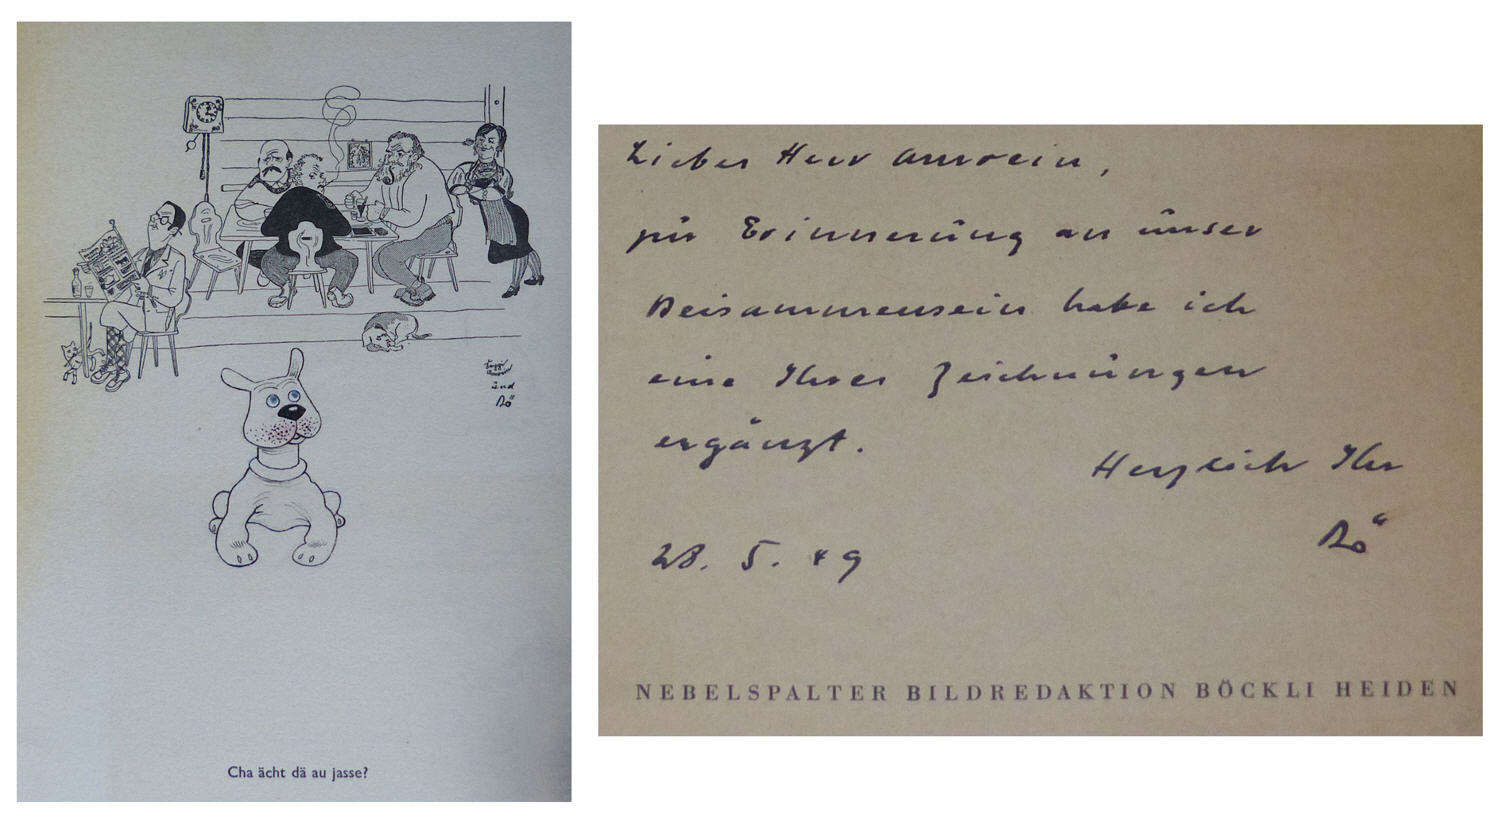 und
Bö
Cha ächt dä au jasse?
Lieber Herr Amrein,
zur Erinnerung an unser
Beisammensein habe ich
eine Ihrer Zeichnungen
ergänzt.
Herzlich Ihr
Bö
28. 5. 49
NEBELSPALTER BILDREDAKTION BÖCKLI HEIDEN